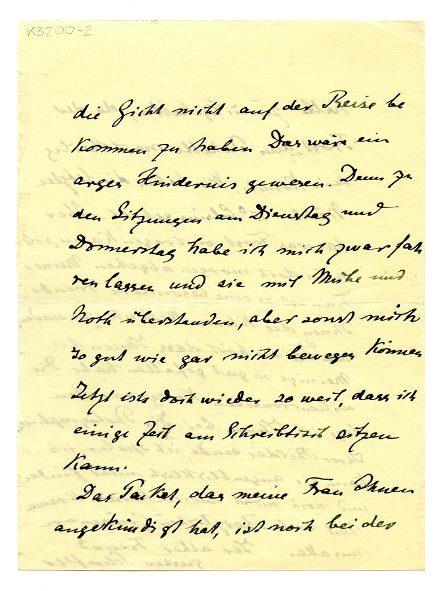 K3200-2
die Gicht nicht auf der Reise be
kommen zu haben Das wäre ein
arges Hindernis gewesen. Denn zu
den Sitzungen am Dienstag und
Donnerstag habe ich mich zwar fah
ren lassen und sie mit Mühe und
Noth überstanden, aber sonst mich
so gut wie gar nicht bewegen können
Jetzt ists doch wieder so weit, dass ich
einige Zeit am Schreibtisch sitzen
kann.
Das Packet, das meine Frau Ihnen
angekündigt hat, ist noch bei der